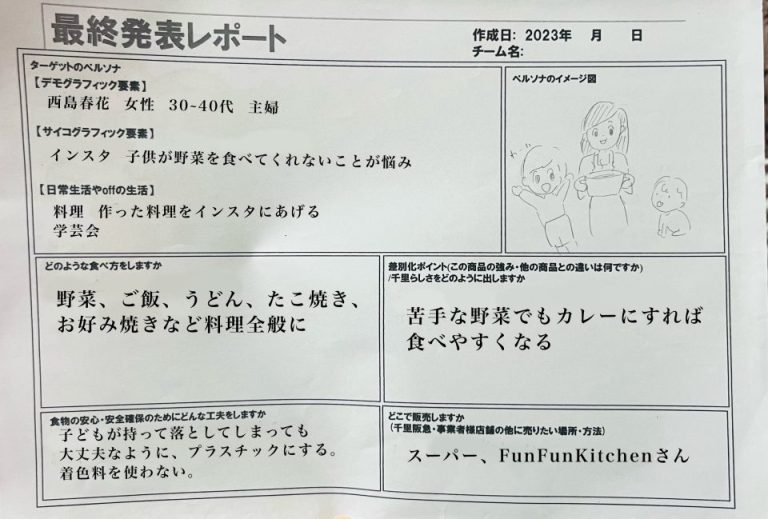 最終発表レポート
作成日: 2023年　月　日
チーム名:
ターゲットのペルソナ
【デモグラフィック要素】
西島春花　女性　30~40代　主婦
【サイコグラフィック要素】
インスタ　子供が野菜を食べてくれないことが悩み
【日常生活やoffの生活】
料理　作った料理をインスタにあげる
学芸会
ペルソナのイメージ図
わーい
どのような食べ方をしますか
野菜、ご飯、うどん、たこ焼き、
お好み焼きなど料理全般に
差別化ポイント(この商品の強み・他の商品との違いは何ですか)
/千里らしさをどのように出しますか
苦手な野菜でもカレーにすれば
食べやすくなる
食物の安心・安全確保のためにどんな工夫をしますか
子どもが持って落としてしまっても
大丈夫なように、プラスチックにする。
着色料を使わない。
どこで販売しますか
(千里阪急・事業者様店舗の他に売りたい場所・方法)
スーパー、FunFunKitchenさん